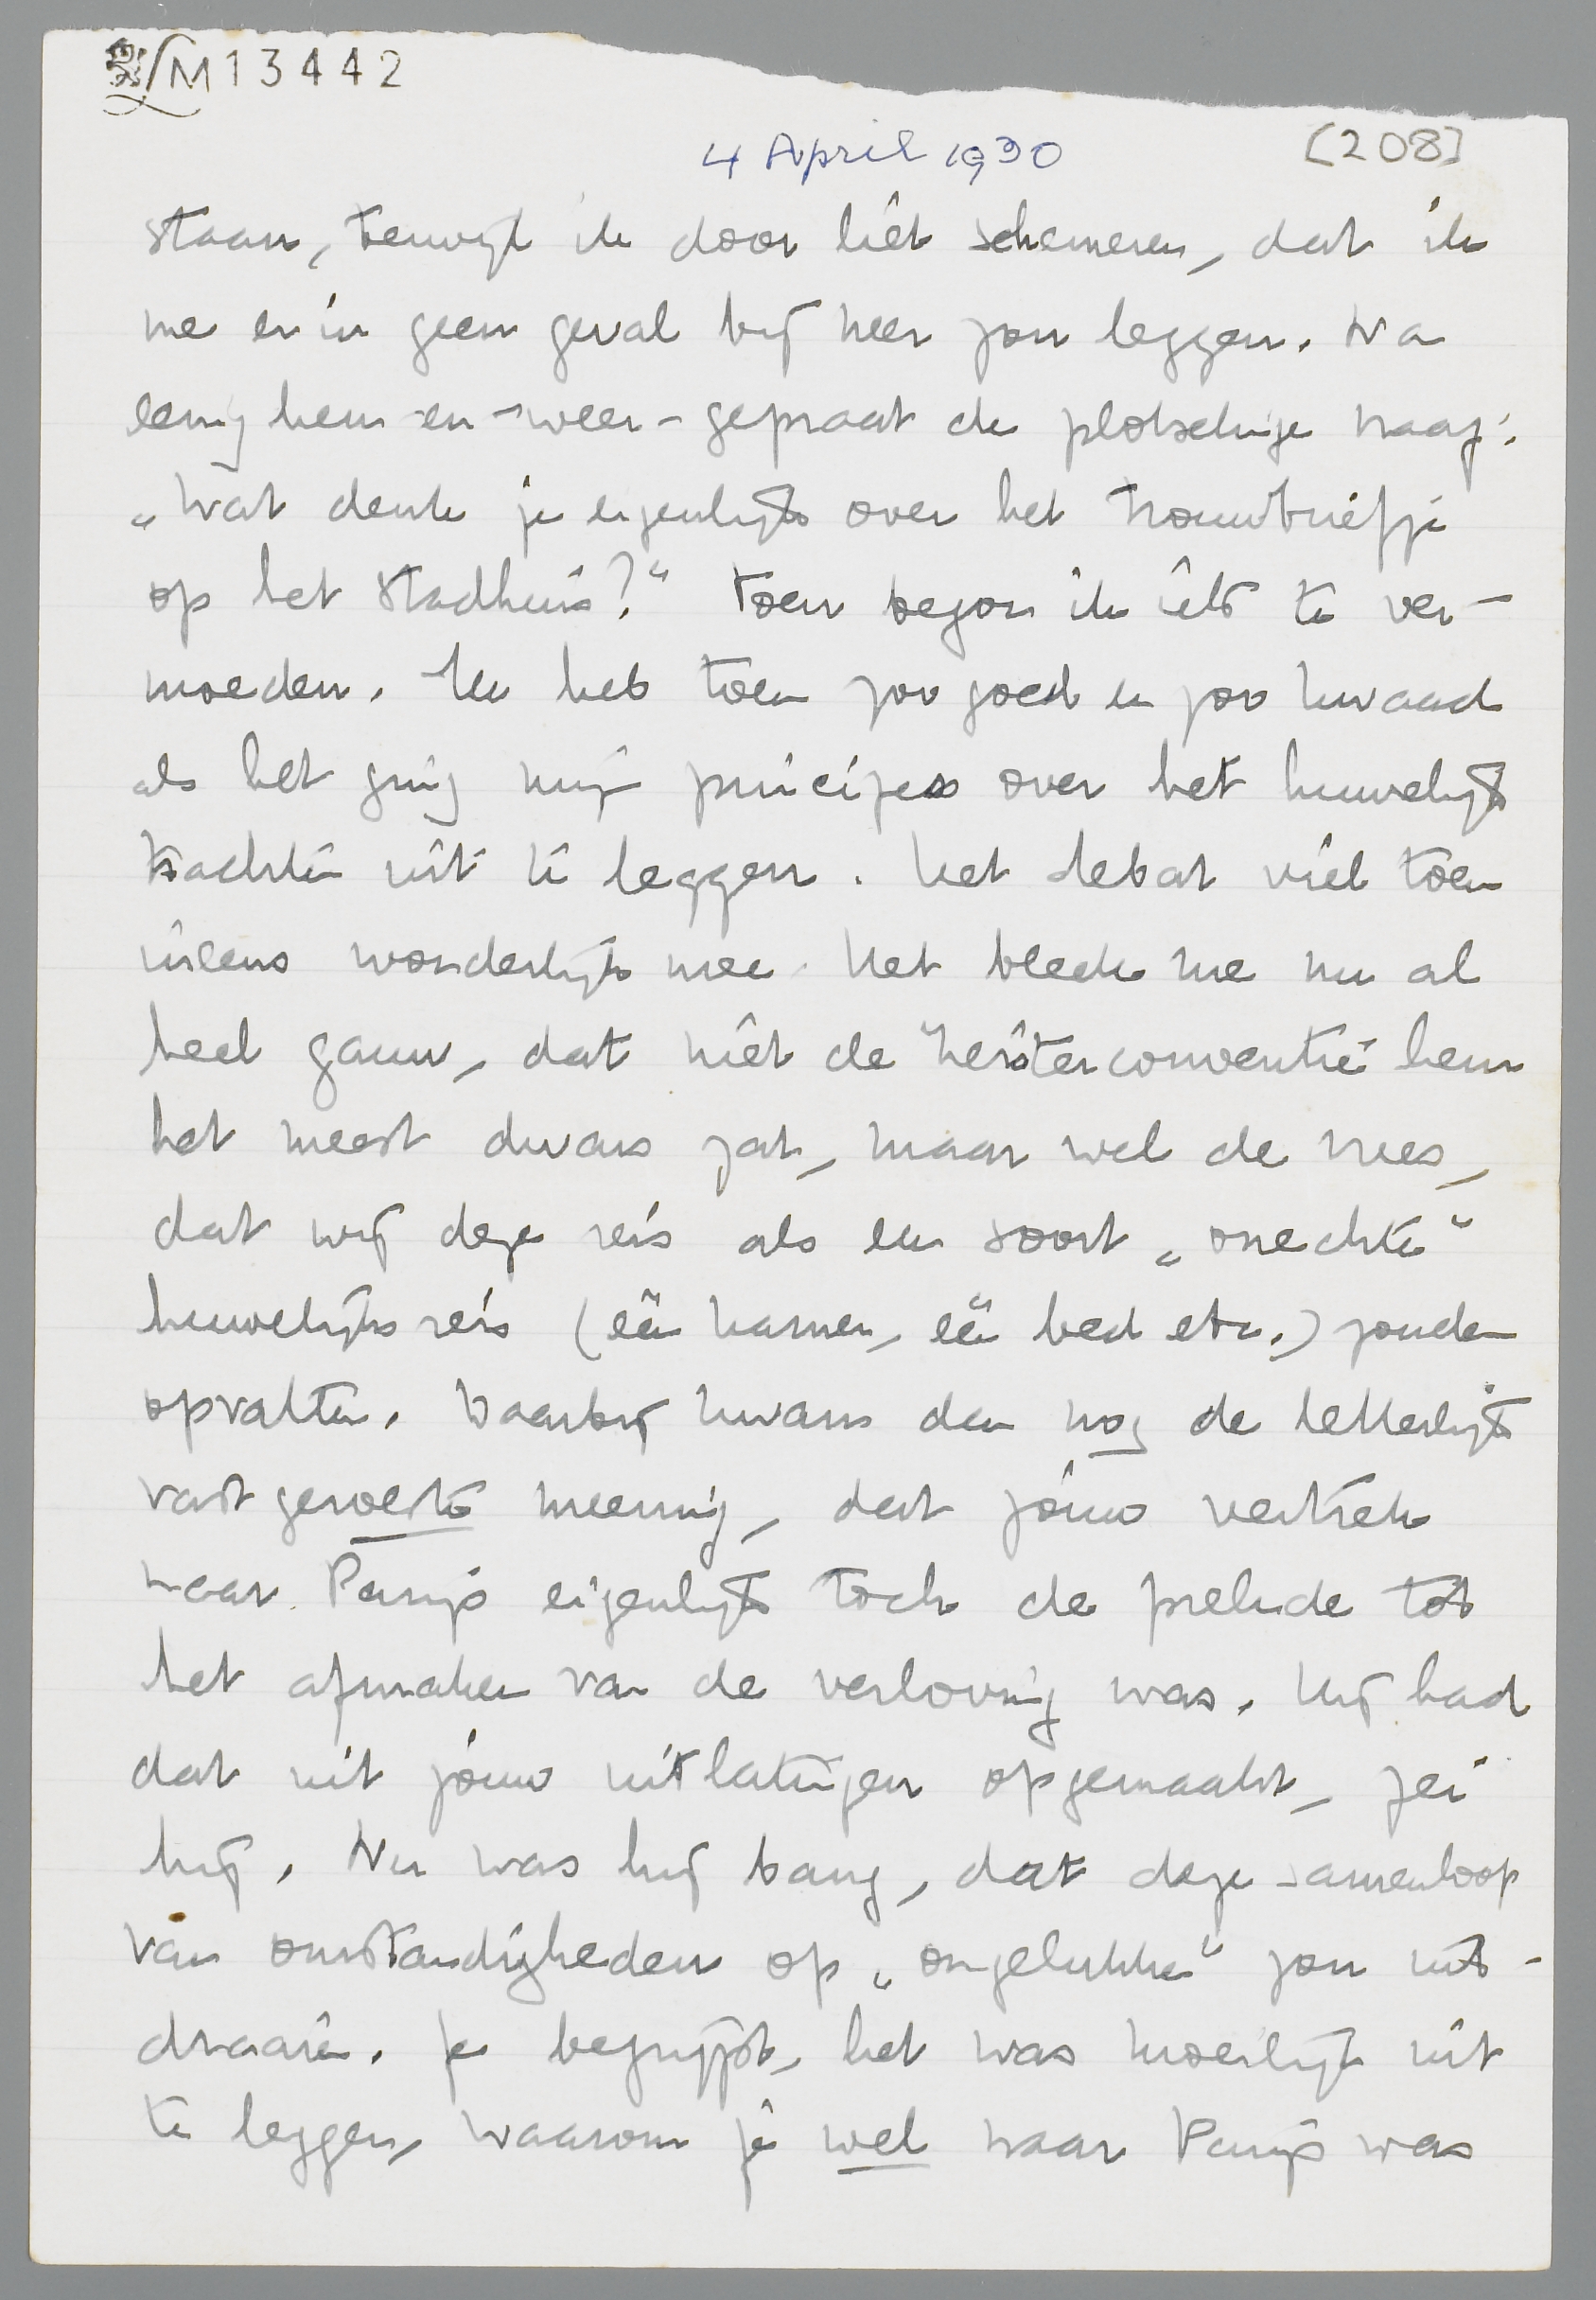 LM 13442
4 April 1930
[208]
staan, terwijl ik door liet schemeren, dat ik
me er in geen geval bij neer zou leggen. Na
eenig heen-en-weer-gepraat de plotselinge vraag:
„Wat denk je eigenlijk over het trouwbriefje
op het stadhuis?“ Toen begon ik iets te ver-
moeden. Ik heb toen zoo goed en zoo kwaad
als het ging mijn principes over het huwelijk
trachten uit te leggen. Het debat viel toen
ineens wonderlijk mee. Het bleek me nu al
heel gauw, dat niet de conventie hem
het meest dwars zat, maar wel de vrees,
dat wij deze reis als een soort „onechte“
huwelijksreis (één kamer, één bed etc.) zouden
opvatten. Daarbij kwam dan nog de letterlijk
vastgeroeste meening, dat jóuw vertrek
naar Parijs eigenlijk toch de prelude tot
het afmaken van de verloving was. Hij had
dat uit jóuw uitlatingen opgemaakt, zei
hij. Nu was hij bang, dat deze samenloop
van omstandigheden op „ongelukken“ zou uit-
draaien. Je begrijpt, het was moeilijk uit
te leggen, waarom je wel naar Parijs was